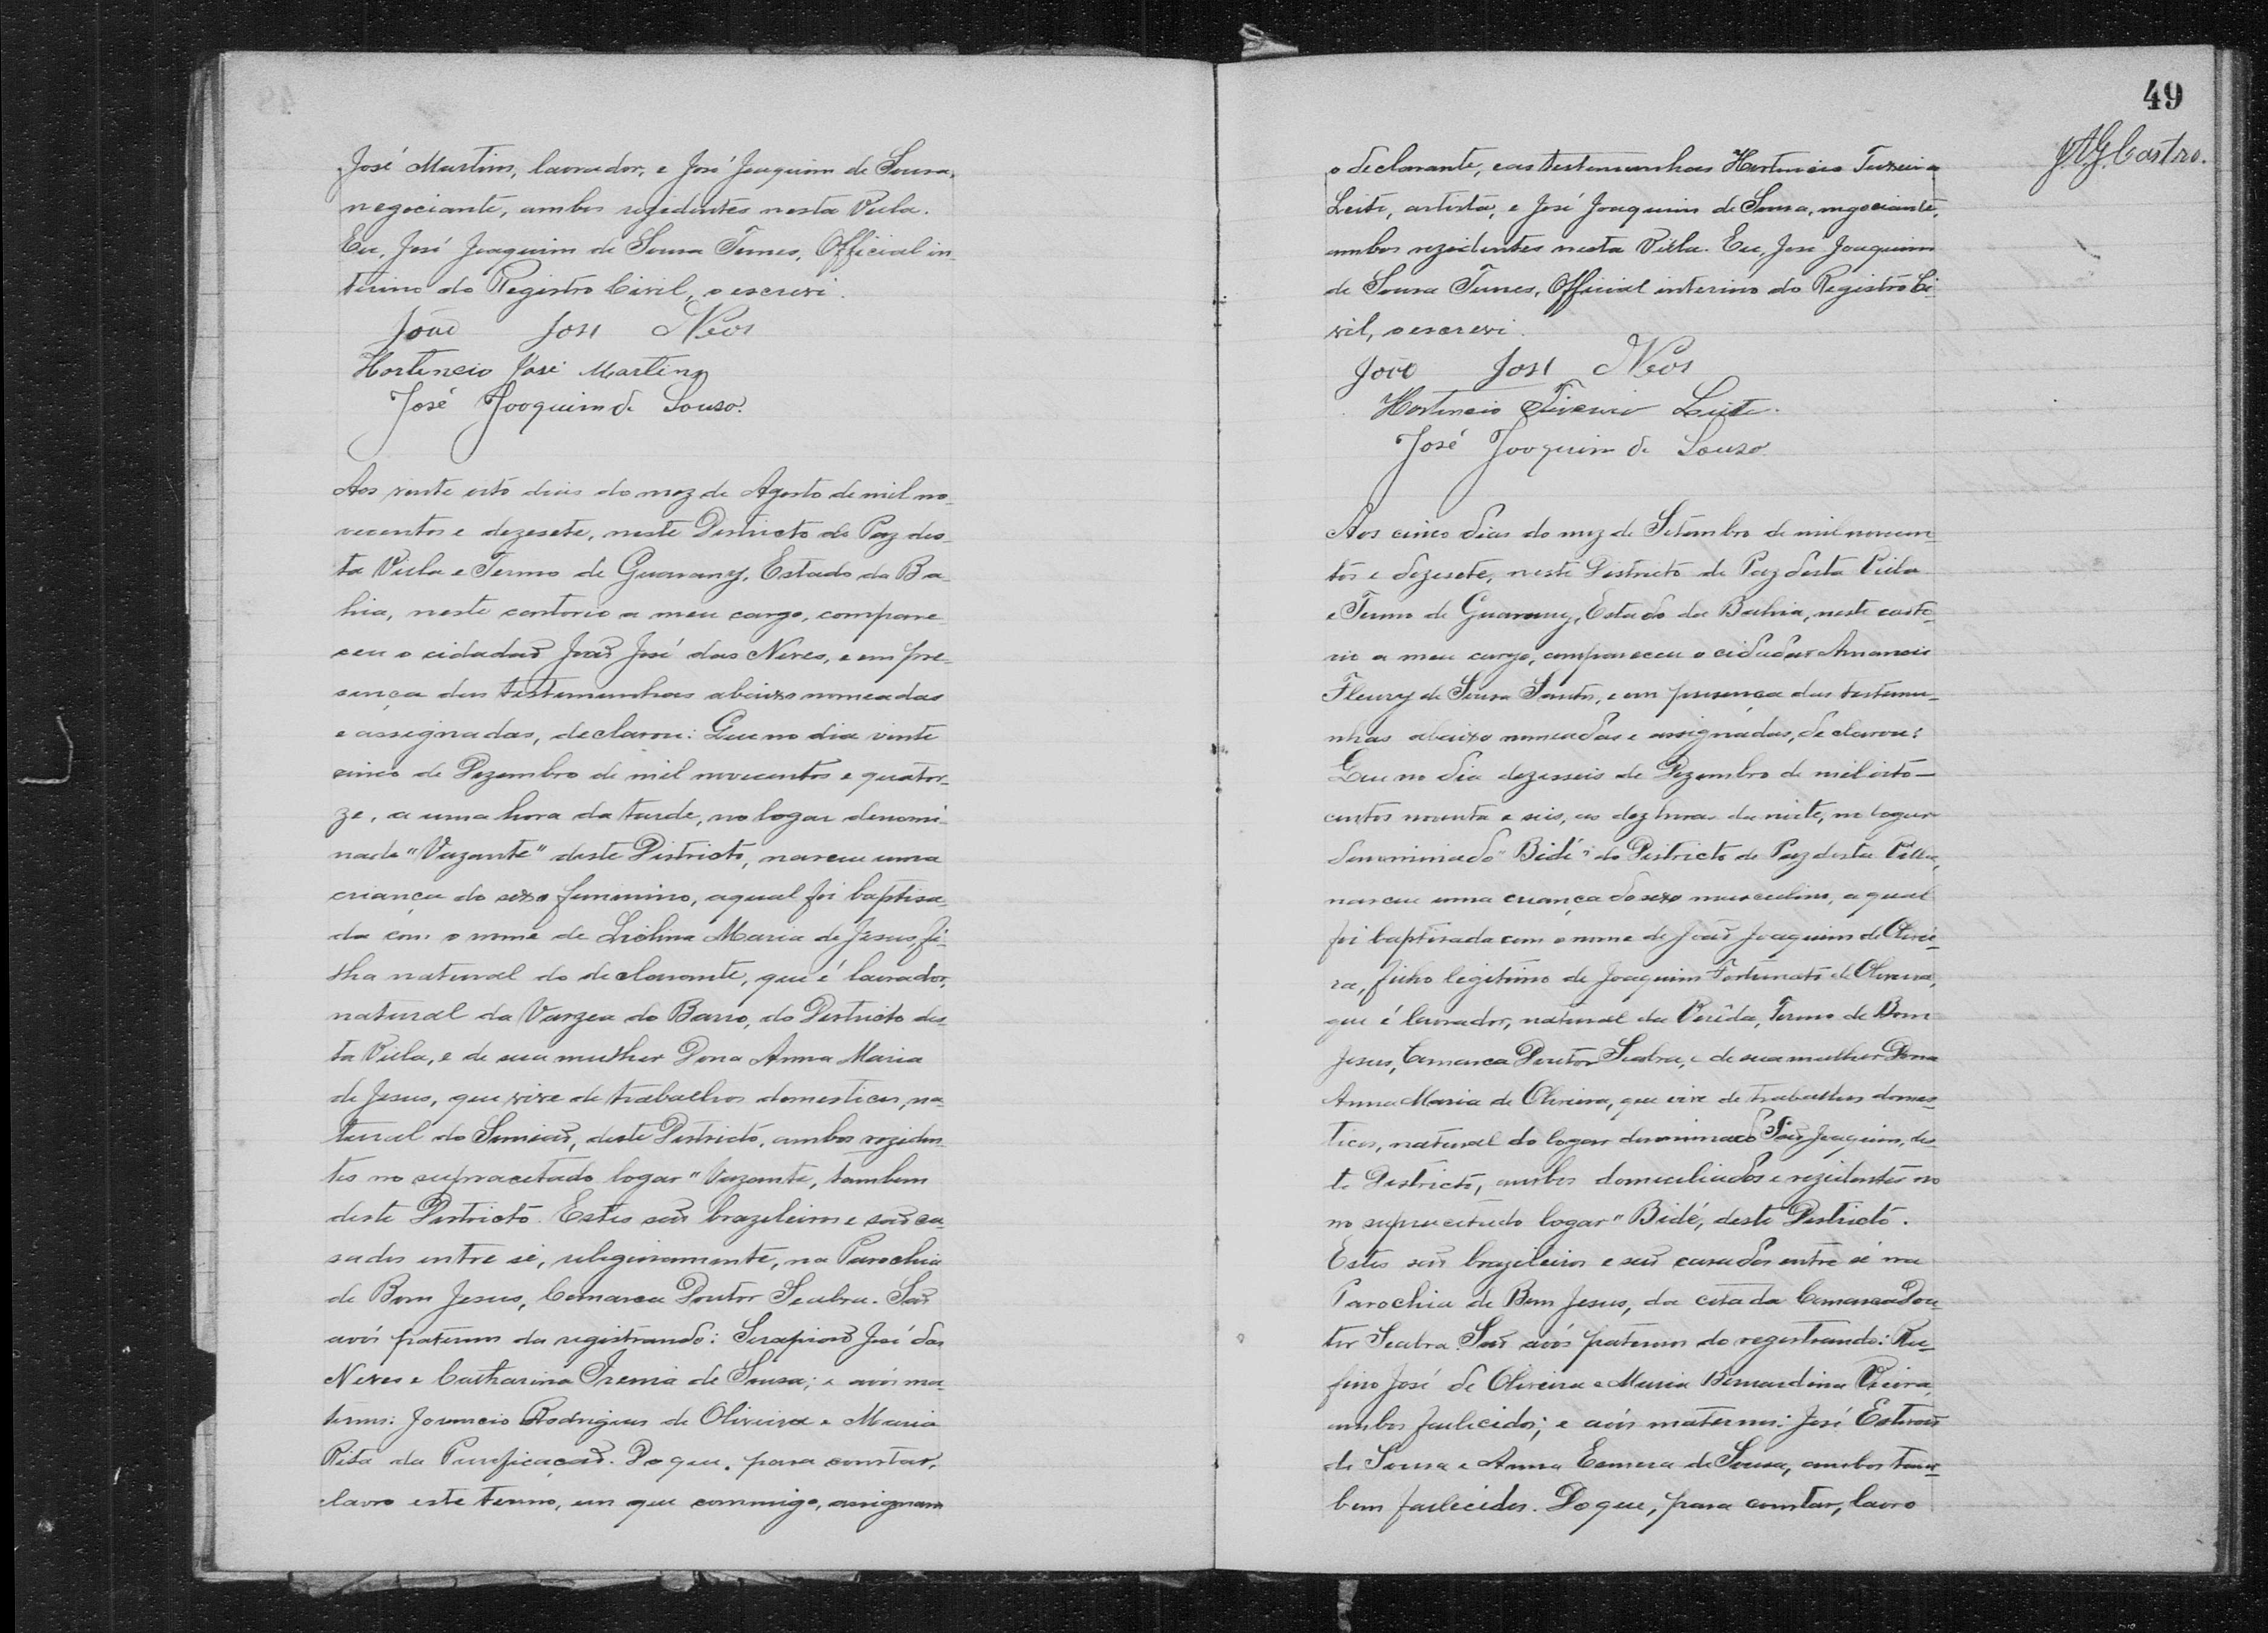 José Martins, lavrador, e José Joaquim de Sousa,
negociante, ambos rezidentes nesta Villa.
Eu, José Joaquim de Sousa Tunes, Official in-
terino do Registro Civil, o escrevi.
João José Neos
Hortencio José Martins
José Joaquim de Souso.
Aos vinte oito dias do mez de Agosto de mil no-
vecentos e dezesete, neste Districto de Paz des-
ta Villa e Termo de Guarany, Estado da Ba-
hia, neste cartorio a meu cargo, compare-
ceu o cidadão João José das Neves, e em pre-
sença das testemunhas abaixo nomeadas
e assignadas, declarou: Que no dia vinte
cinco de Dezembro de mil novecentos e quator-
ze, a uma hora da tarde, no logar denomi-
nado "Vazante" deste Districto, nasceu uma
criança do sexo feminino, aqual foi baptisa-
da com o nome de Maria de Jesus, fi-
lha natural do declarante, que é lavrador,
natural da Varzea do Barro, do Districto des-
ta Villa, e de sua mulher Dona Anna Maria
de Jesus, que vive de trabalhos domesticos, na-
tural do deste Districto, ambos reziden-
tes no supracitado logar "Vazante, tambem
deste Districto. Estes são brazileiros e são ca-
sados entre si, religiosamente, na Parochia
de Bom Jesus, Comarca Doutor Seabra. São
avós paternos da registrando: Serapião José das
Neves e Catharina de Sousa; e avós ma-
ternos: Rodrigues de Oliveira e Maria
Rita da Purificação. Do que, para constar,
lavro este termo, em que commigo, assignam
49
JAGCastro.
o declarante, e as testemunhas Hortencio Teixeira
Leite, artista, e José Joaquim de Sousa, negociante,
ambos rezidentes nesta Villa. Eu, José Joaquim
de Sousa Tunes, Official interino do Registro Ci-
vil, o escrevi.
João José Neos
Hortencio Teixeira Leite.
José Joaquim de Souso
Aos cinco dias do mez de Setembro de mil novecen-
tos e dezesete, neste Districto de Paz desta Villa
e Termo de Guarany, Estado da Bahia, neste carto-
rio a meu cargo, compareceu o cidadão Amancio
Fleury de Sousa Santos, e em presença das testemu-
nhas abaixo nomeadas e assignadas, declarou:
Que no dia dezesseis de Dezembro de mil oito-
centos noventa e seis, as dez horas da noite, no logar
denominado "Bidé" do Districto de Paz desta Villa,
nasceu uma criança do sexo masculino, a qual
foi baptisada com o nome de João Joaquim de Olivei-
ra, filho legitimo de Joaquim Fortunato de Oliveira,
que é lavrador, natural da Termo de Bom
Jesus, Comarca Doutor Seabra, e de sua mulher Dona
Anna Maria de Oliveira, que vive de trabalhos domes-
ticos, natural do logar denominado São Joaquim, des-
te Districto, ambos domiciliados e rezidentes no
no supracitado logar "Bidé, deste Districto.
Estes são brazileiros e são casados entre si na
Parochia de Bom Jesus, da citada Comarca Dou-
tor Seabra. São avós paternos do registrando: Ru-
fino José de Oliveira e Maria Bernardina Vieira,
ambos fallecidos; e avós maternos: José Estevão
de Sousa e Anna de Sousa, ambos tam-
bem fallecidos. Do que, para constar, lavro